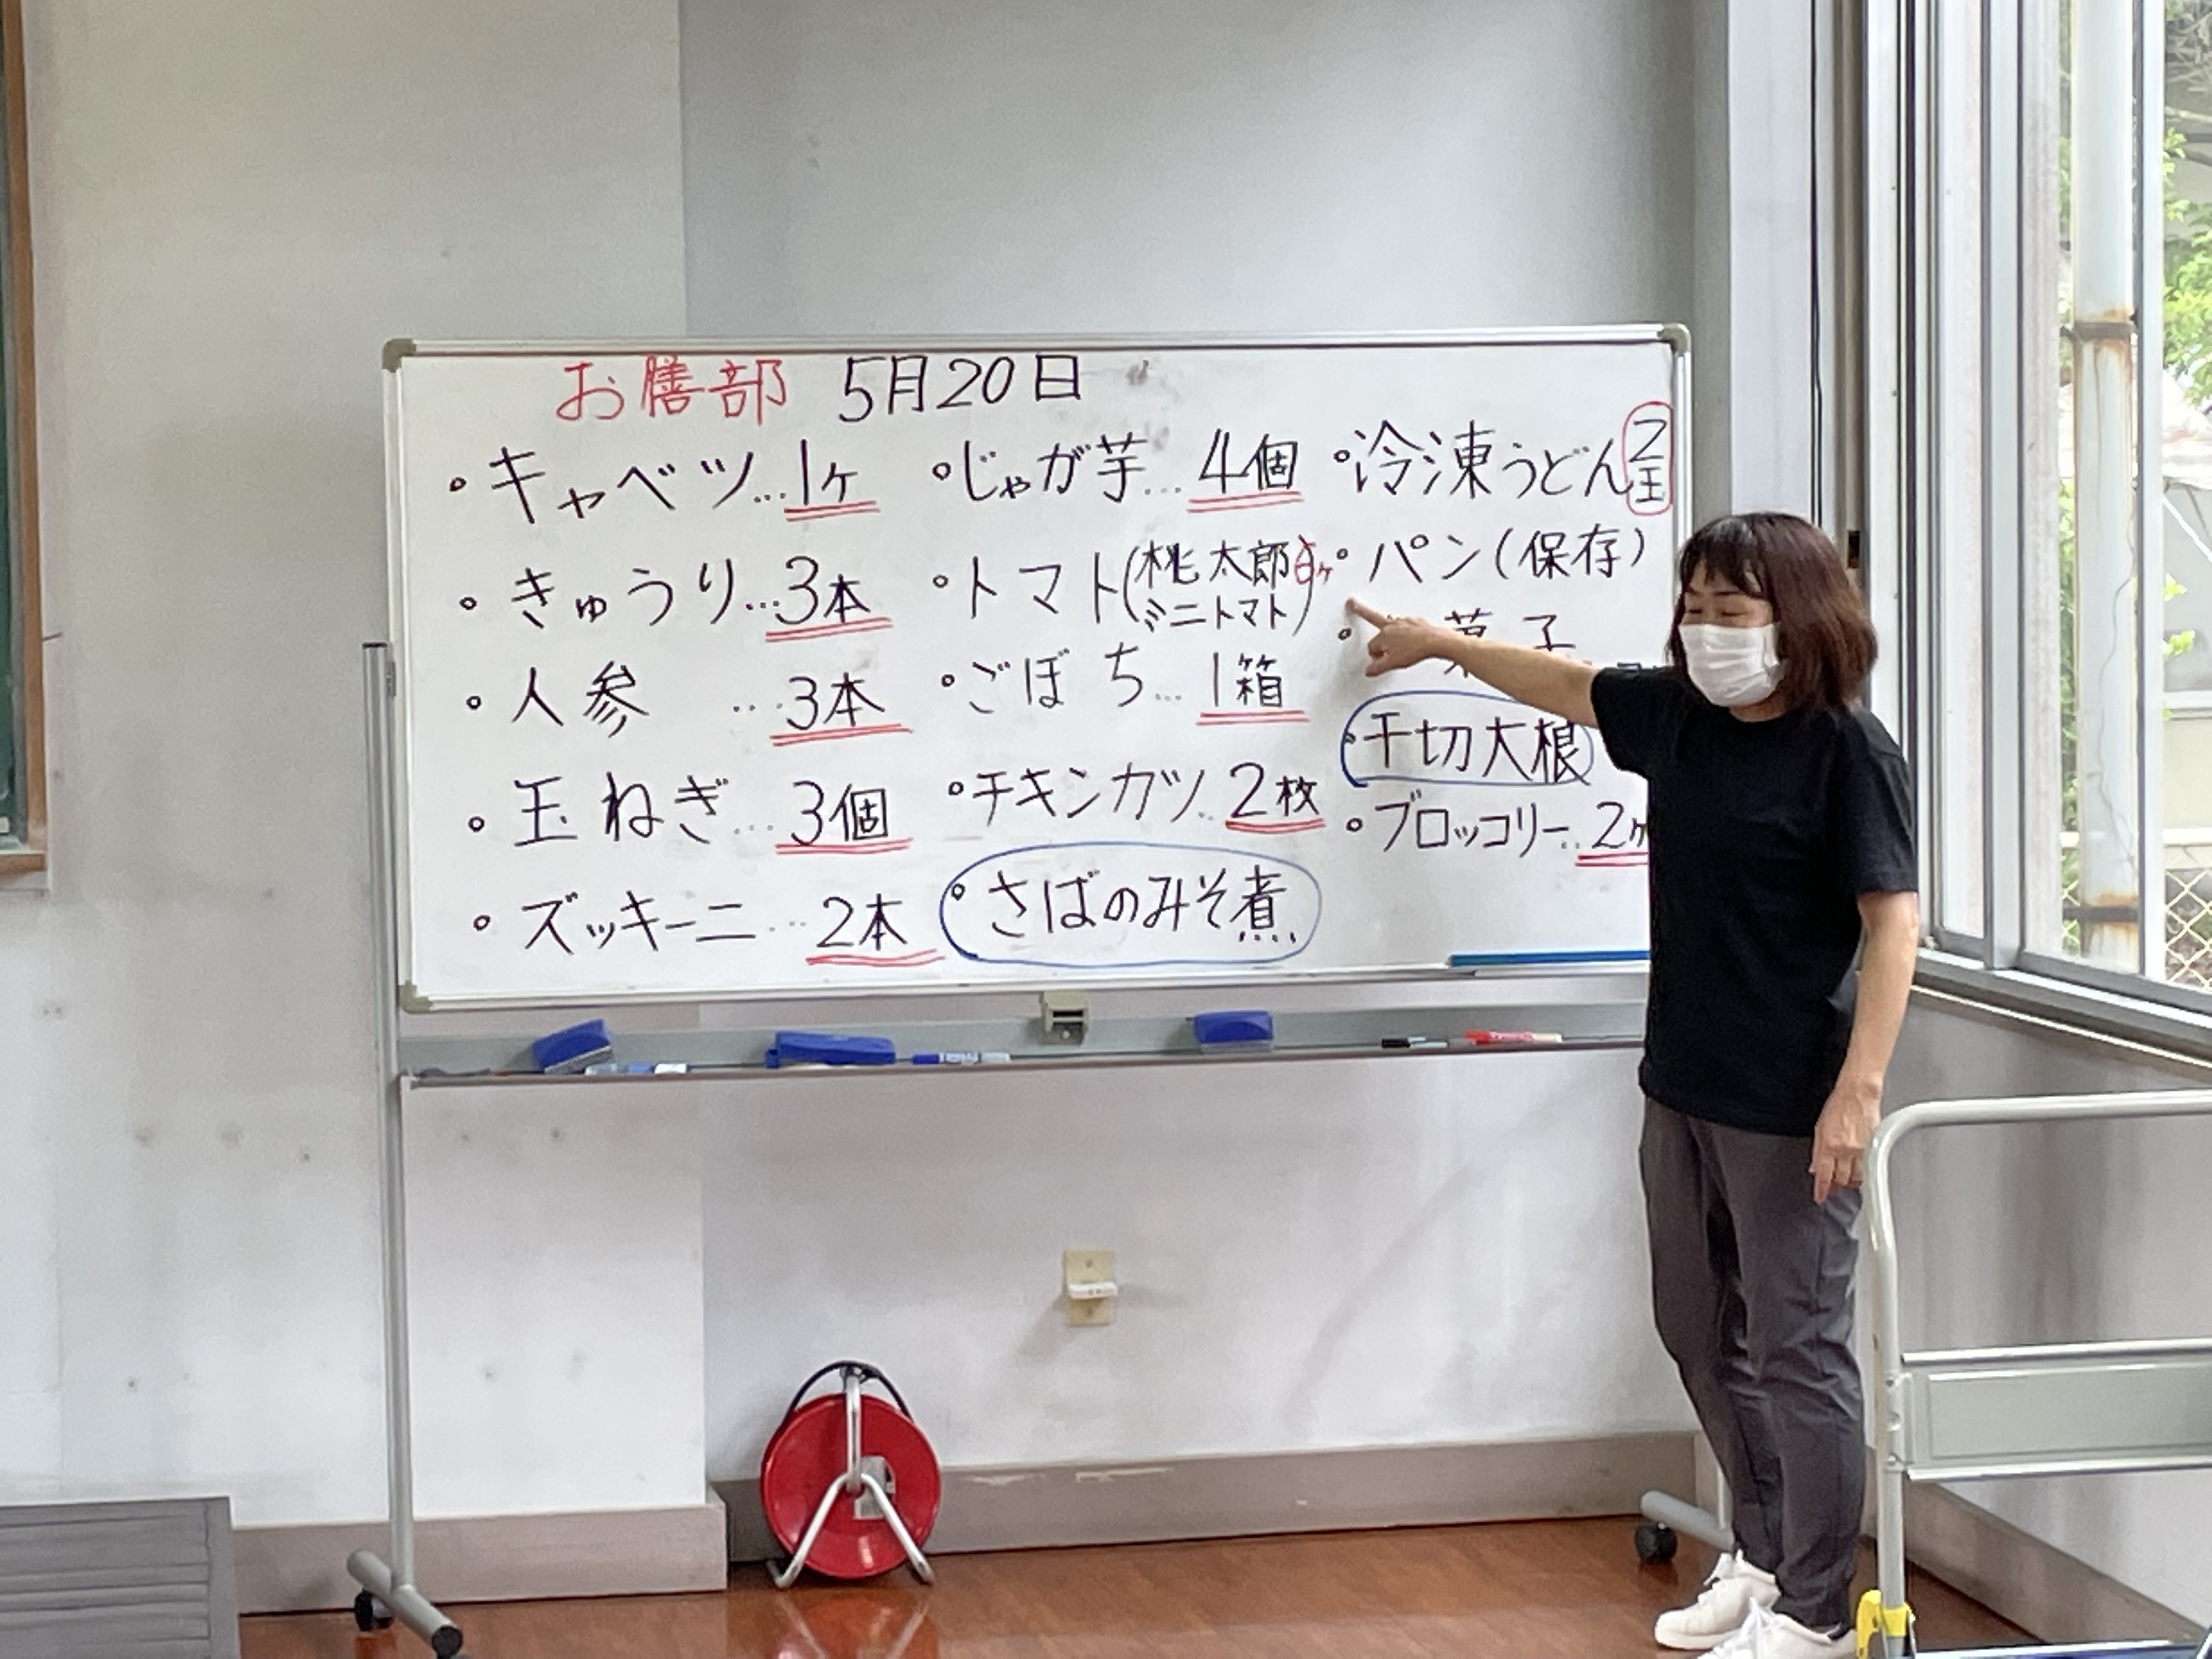 お膳部 5月20日
・キャベツ…1ヶ
・きゅうり…3本
・人参 …3本
・玉ねぎ…3個
・ズッキーニ…2本
・じゃが芋…4個
・トマト(桃太郎
ミニトマト)
・ごぼち…1箱
・チキンカツ…2枚
・さばのみそ煮
・冷凍うどん2玉
・パン(保存)
菓子
・干切大根
・ブロッコリー…2ヶ